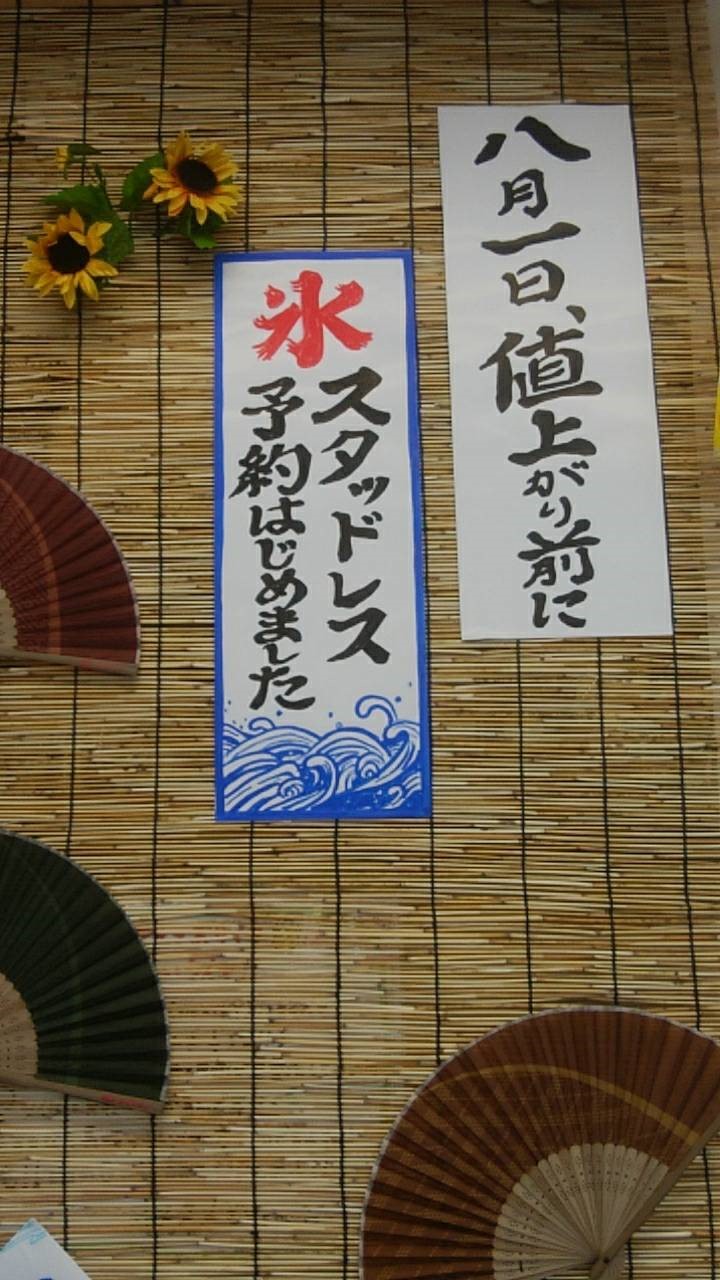 八月一日、値上がり前に
氷
スタッドレス
予約はじめました